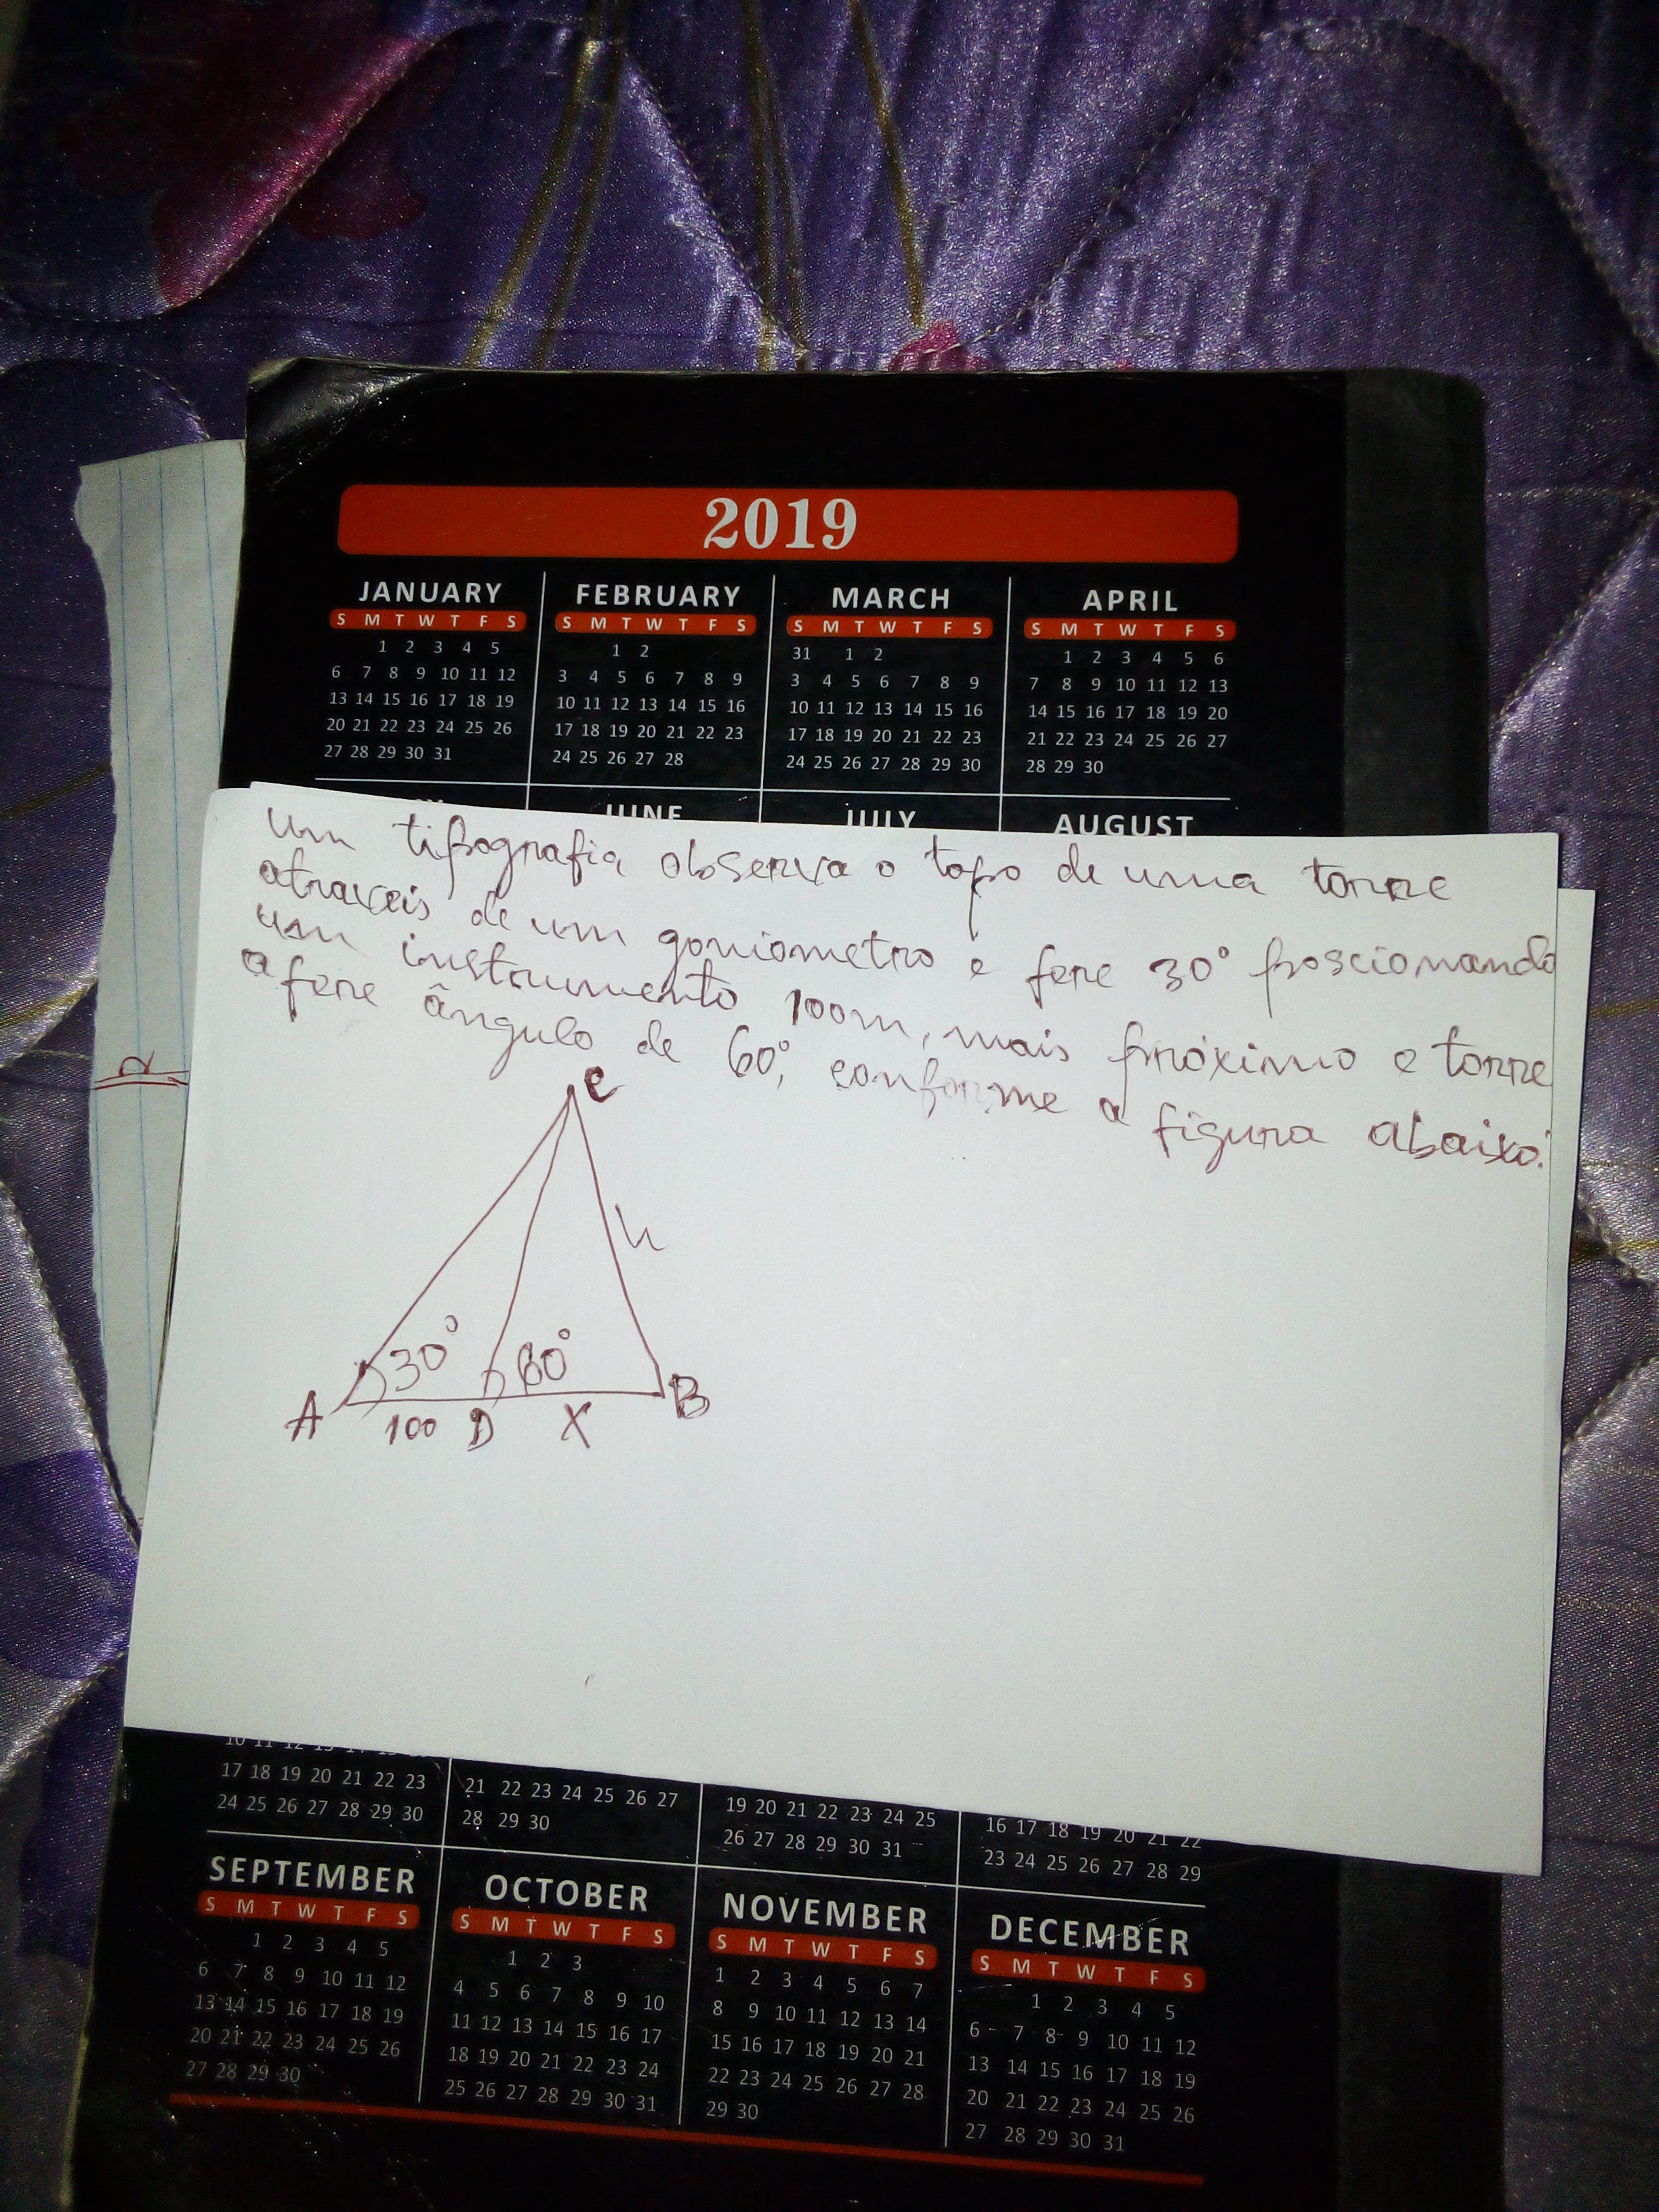 2019
JANUARY FEBRUARY MARCH APRIL
S M T W T F S S M T W T F S S M T W T F S S M T W T F S
1 2 3 4 5 1 2 31 1 2 1 2 3 4 5 6
6 7 8 9 10 11 12 3 4 5 6 7 8 9 3 4 5 6 7 8 9 7 8 9 10 11 12 13
13 14 15 16 17 18 19 10 11 12 13 14 15 16 10 11 12 13 14 15 16 14 15 16 17 18 19 20
20 21 22 23 24 25 26 17 18 19 20 21 22 23 17 18 19 20 21 22 23 21 22 23 24 25 26 27
27 28 29 30 31 24 25 26 27 28 24 25 26 27 28 29 30 28 29 30
JUNE JULY AUGUST
um tipografia observa o topo de uma torre
atraveis de um goniometro e fere 30° poscionando
um instrumento 100m, mais próximo e torre
a fere ângulo de 60°, conforme a figura abaixo:
C
h
30° 60°
A 100 D X B
17 18 19 20 21 22 23 21 22 23 24 25 26 27 19 20 21 22 23 24 25 16 17 18 19 20 21 22
24 25 26 27 28 29 30 28 29 30 26 27 28 29 30 31 23 24 25 26 27 28 29
SEPTEMBER OCTOBER NOVEMBER DECEMBER
S M T W T F S S M T W T F S S M T W T F S S M T W T F S
1 2 3 4 5 1 2 3 1 2 3 4 5 6 7 1 2 3 4 5
6 7 8 9 10 11 12 4 5 6 7 8 9 10 8 9 10 11 12 13 14 6 7 8 9 10 11 12
13 14 15 16 17 18 19 11 12 13 14 15 16 17 15 16 17 18 19 20 21 13 14 15 16 17 18 19
20 21 22 23 24 25 26 18 19 20 21 22 23 24 22 23 24 25 26 27 28 20 21 22 23 24 25 26
27 28 29 30 25 26 27 28 29 30 31 29 30 27 28 29 30 31